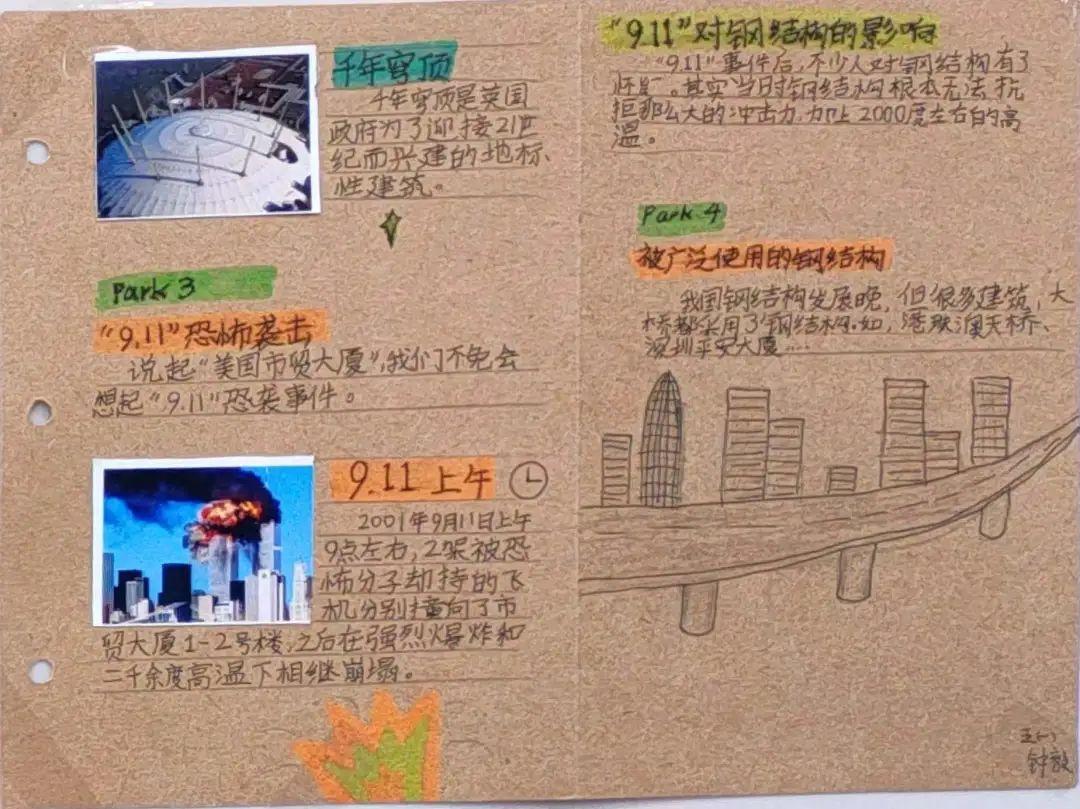 千年穹顶
千年穹顶是英国
政府为了迎接21世
纪而兴建的地标
性建筑。
Park 3
"9.11"恐怖袭击
说起"美国市贸大厦",我们不免会
想起"9.11"恐袭事件。
9.11 上午
2001年9月11日上午
9点左右,2架被恐
怖分子劫持的飞
机分别撞向了市
贸大厦1-2号楼,之后在强烈爆炸和
二千余度高温下相继崩塌。
"9.11"对钢结构的影响
"9.11"事件后,不少人对钢结构有了
怀疑。其实当时钢结构根本无法抗
拒那么大的冲击力,加上2000度左右的高
温。
Park 4
被广泛使用的钢结构
我国钢结构发展晚,但很多建筑,大
桥都采用了钢结构.如,港珠澳大桥、
深圳平安大厦....
钟毅